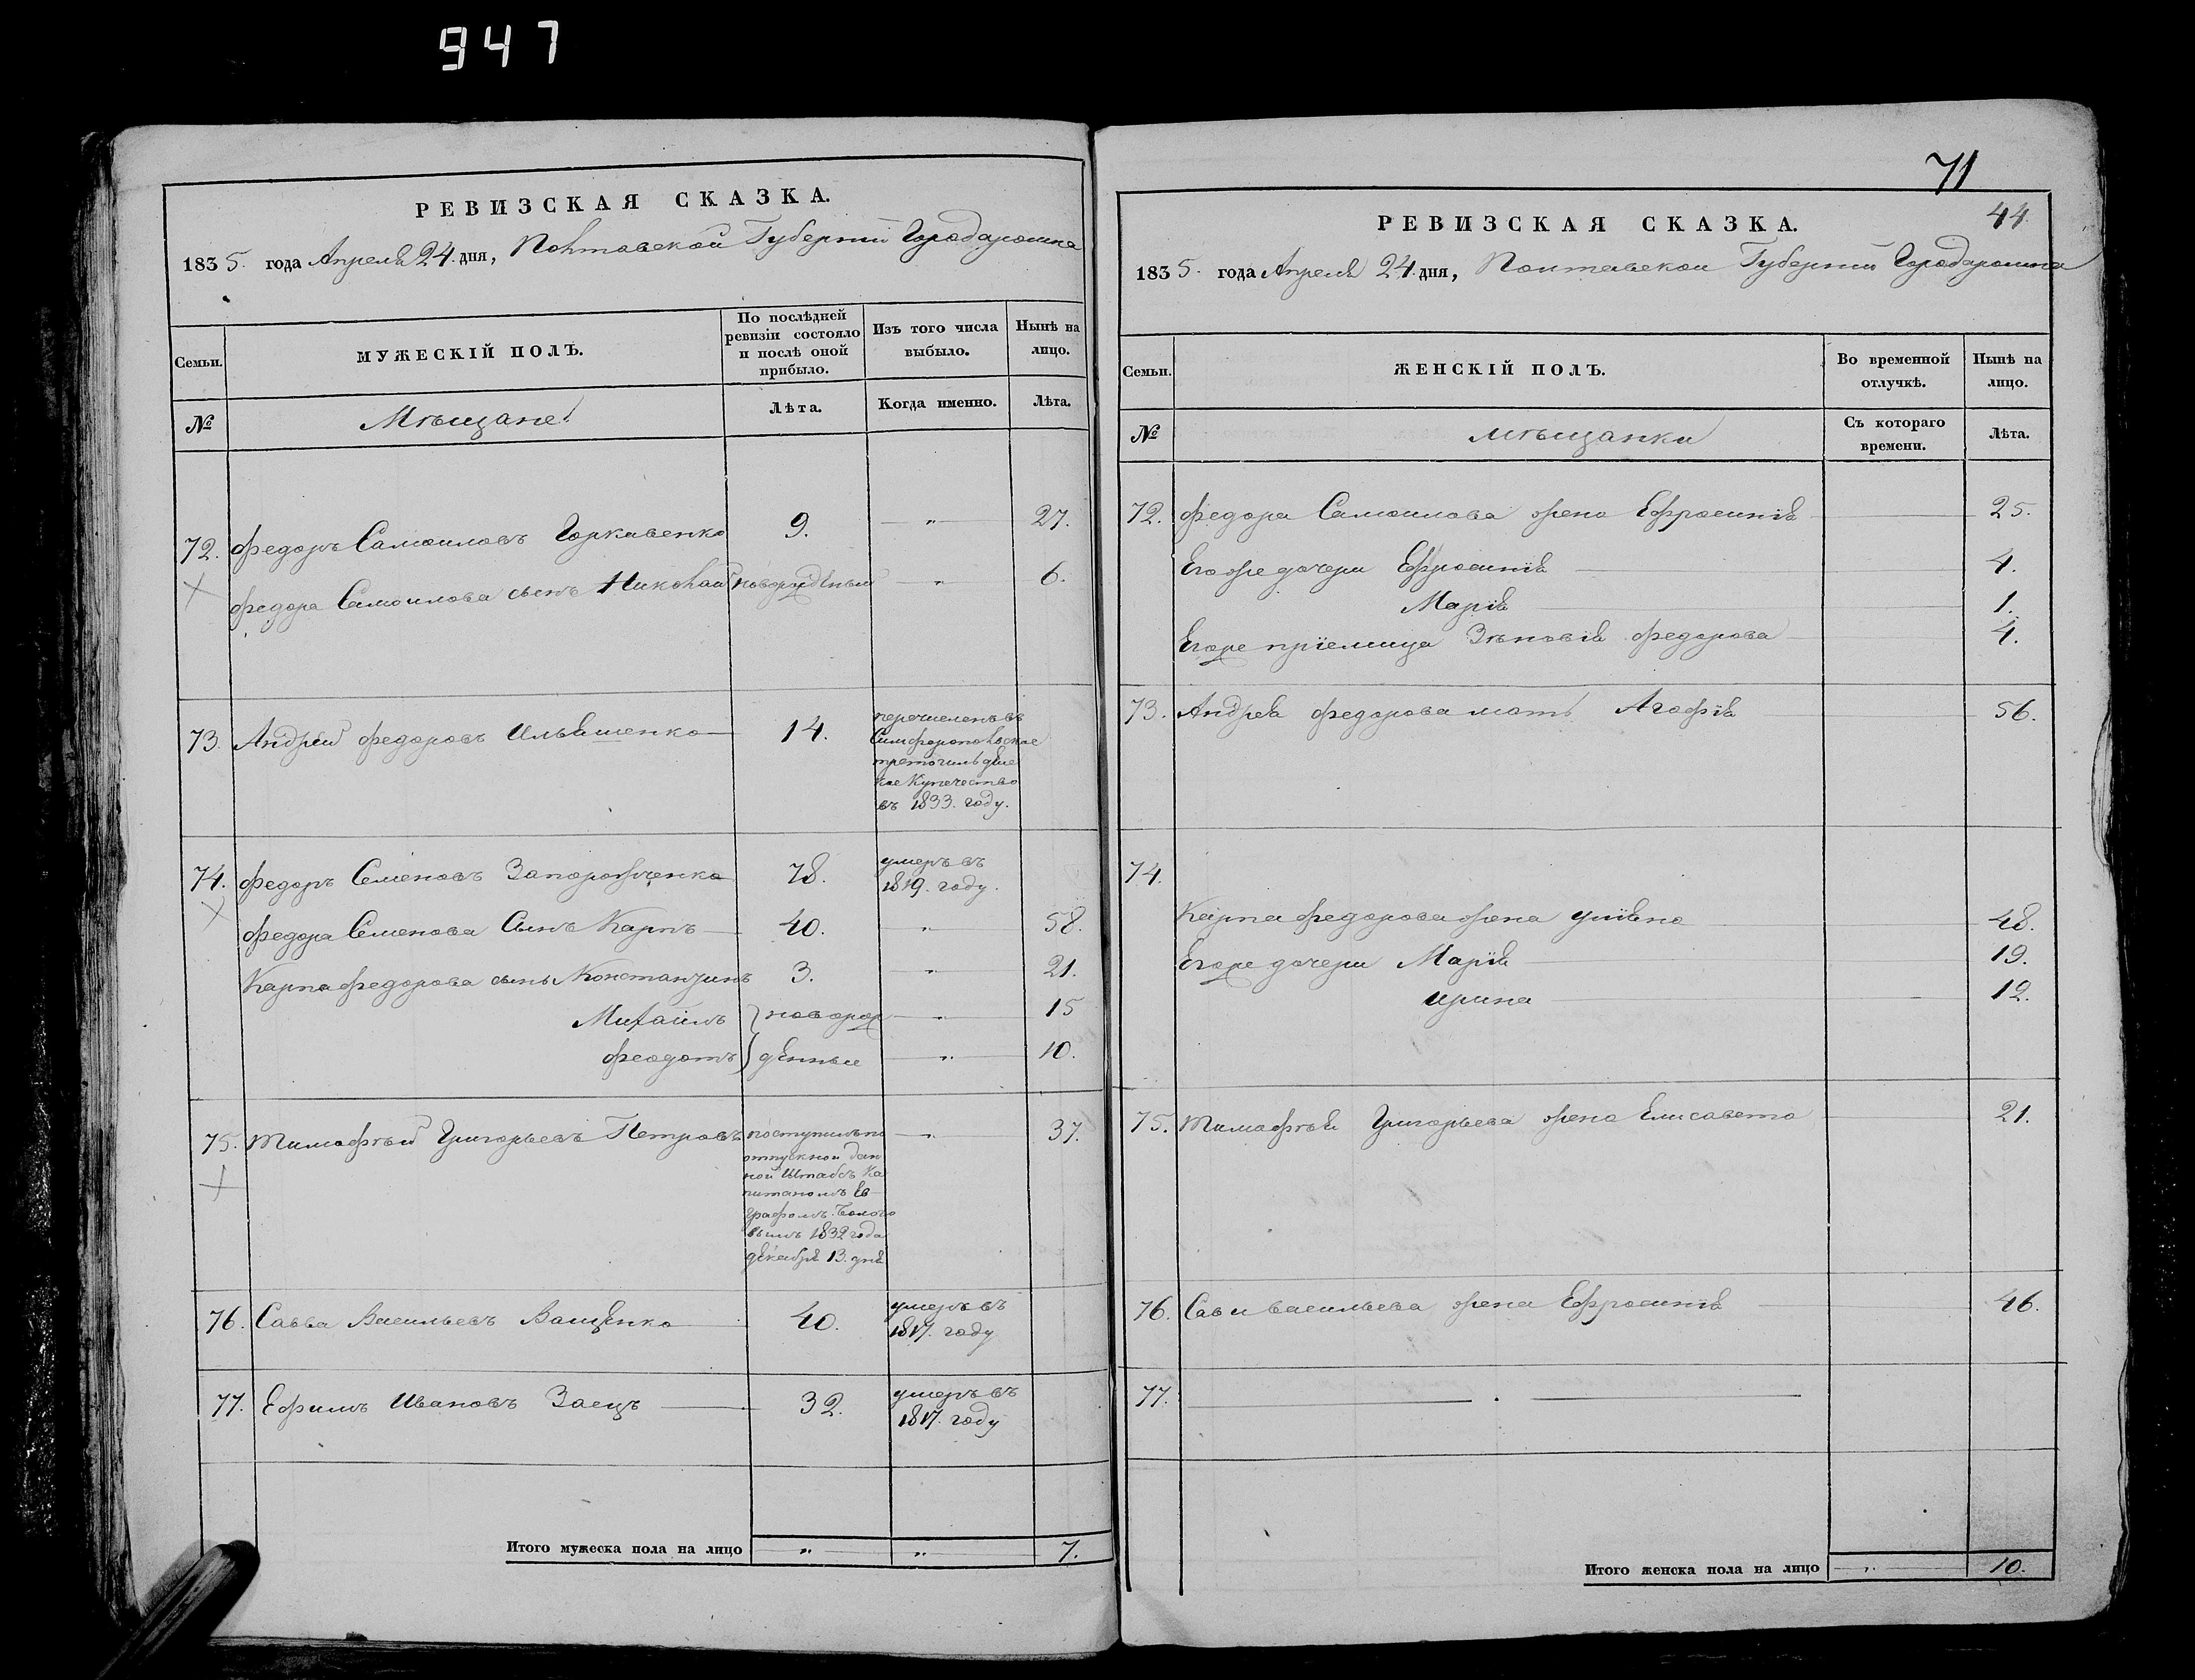 947
РЕВИЗСКАЯ СКАЗКА.
1835. года Апреля 24. дня, Полтавской Губернии Города ромна
Семьи.
МУЖЕСКІЙ ПОЛЪ.
По послѣдней ревизіи состояло и послѣ оной прибыло.
Изъ того числа выбыло.
Нынѣ на лицо.
№
Мѣщане
Лѣта.
Когда именно.
Лѣта.
72. Федоръ Самоиловъ Горкавенко 9. " 27.
Федора Самоилова сынъ Николай новорожденый " 6.
73. Андрей Федоровъ Ильяшенко 14.
перечисленъ въ
Симферопольское
третогильдей
ское Купечество
въ 1833. году.
74. Федоръ Семеновъ Запорожченко 78. умеръ въ
1819. году.
Федора Семенова Сынъ Карпъ 40. " 58.
Карпа Федорова сынъ Константинъ 3. " 21.
Михаилъ } новорож " 15
Феодотъ } денные " 10.
75. Тимофѣй Григорьевъ Петровъ поступилъ по " 37.
отпускной дан
ной Штабсъ Ка
питаномъ Ев
графомъ
вымъ 1832 года
декабря 13. дня
76. Савва Васильевъ Ващенко 40. умеръ въ
1817. году
77. Ефимъ Ивановъ Заецъ 32. умеръ въ
1817. году
Итого мужеска пола на лицо " " 7.
71
44.
РЕВИЗСКАЯ СКАЗКА.
1835. года Апреля 24. дня, Полтавской Губернии Города ромна
Семьи.
ЖЕНСКІЙ ПОЛЪ.
Во временной отлучкѣ.
Нынѣ на лицо.
№
Мѣщанки
Съ котораго времени.
Лѣта.
72. Федора Самоилова жена Ефросинія 25.
Егоже дочери Ефросинія 4.
Марія 1.
Егоже пріемица Зѣновія Федорова 4.
73. Андрея Федорова мать Агафія 56.
74.
Карпа Федорова жена 48.
Егоже дочери Марія 19.
Ирина 12.
75. Тимофѣя Григорьева жена Елисавета 21.
76. Савы Васильева жена Ефросинія 46.
77.
Итого женска пола на лицо " 10.